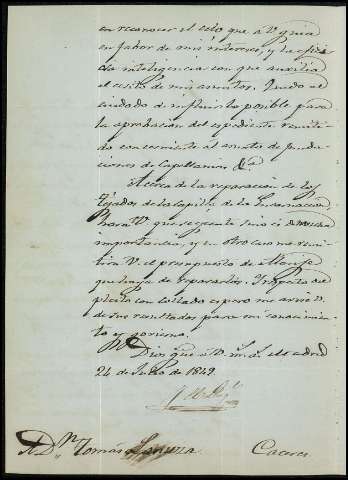 en reconocer el celo que á V. guia
en fabor de mis intereses, y la
inteligencia con que auxilia
el exito de mis asuntos. Quedo al
cuidado de influir lo posible para
la aprobacion del espediente remiti-
do concerniente al asunto de funda-
ciones de Capellanias &a
Acerca de la reparacion de los
tejados de la Capilla de la Encarnacion
hará V. que se ejecute sino es de mucha
importancia, y en otro caso me remi-
tirá V. el presupuesto de
que haya de repararlos. Respecto del
pleito con Collado espero me avise V.
de sus resultados para mi conocimien-
to y gobierno.
Dios gue á V. m. a. Madrid
24 de Julio de 1849.
Sr. Dn Tomás Caceres